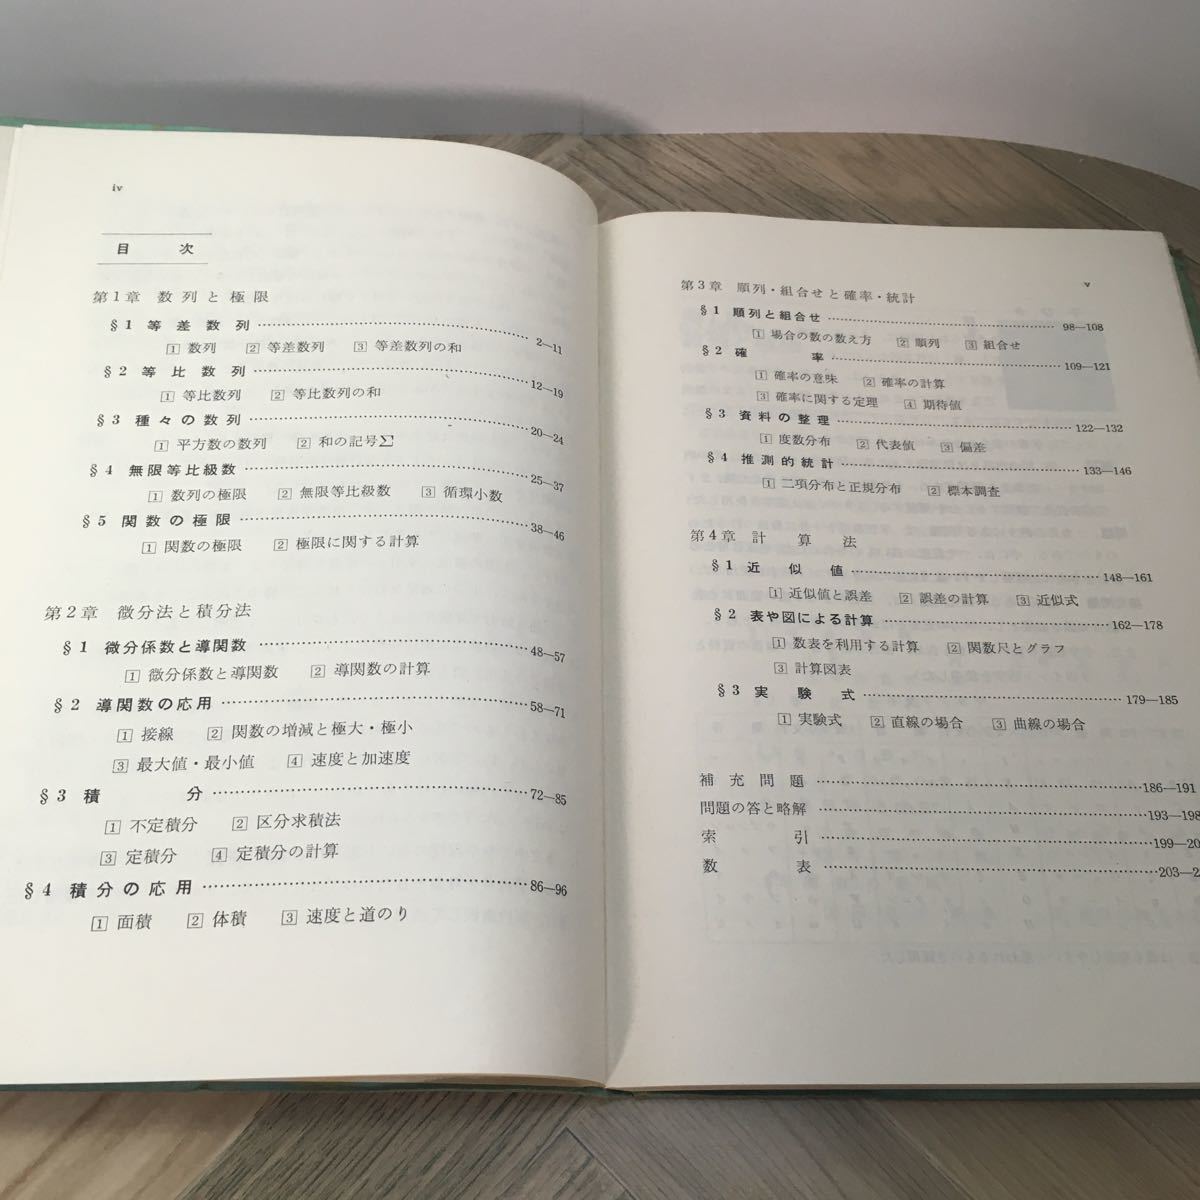 iv
目 次
第1章 数列と極限
§1 等差数列 2—11
1 数列 2 等差数列 3 等差数列の和
§2 等比数列 12—19
1 等比数列 2 等比数列の和
§3 種々の数列 20—24
1 平方数の数列 2 和の記号Σ
§4 無限等比級数 25—37
1 数列の極限 2 無限等比級数 3 循環小数
§5 関数の極限 38—46
1 関数の極限 2 極限に関する計算
第2章 微分法と積分法
§1 微分係数と導関数 48—57
1 微分係数と導関数 2 導関数の計算
§2 導関数の応用 58—71
1 接線 2 関数の増減と極大・極小
3 最大値・最小値 4 速度と加速度
§3 積 分 72—85
1 不定積分 2 区分求積法
3 定積分 4 定積分の計算
§4 積分の応用 86—96
1 面積 2 体積 3 速度と道のり
v
第3章 順列・組合せと確率・統計
§1 順列と組合せ 98—108
1 場合の数の数え方 2 順列 3 組合せ
§2 確 率 109—121
1 確率の意味 2 確率の計算
3 確率に関する定理 4 期待値
§3 資料の整理 122—132
1 度数分布 2 代表値 3 偏差
§4 推測的統計 133—146
1 二項分布と正規分布 2 標本調査
第4章 計算法
§1 近似値 148—161
1 近似値と誤差 2 誤差の計算 3 近似式
§2 表や図による計算 162—178
1 数表を利用する計算 2 関数尺とグラフ
3 計算図表
§3 実験式 179—185
1 実験式 2 直線の場合 3 曲線の場合
補充問題 186—191
問題の答と略解 193—198
索 引 199—20
数 表 203—2